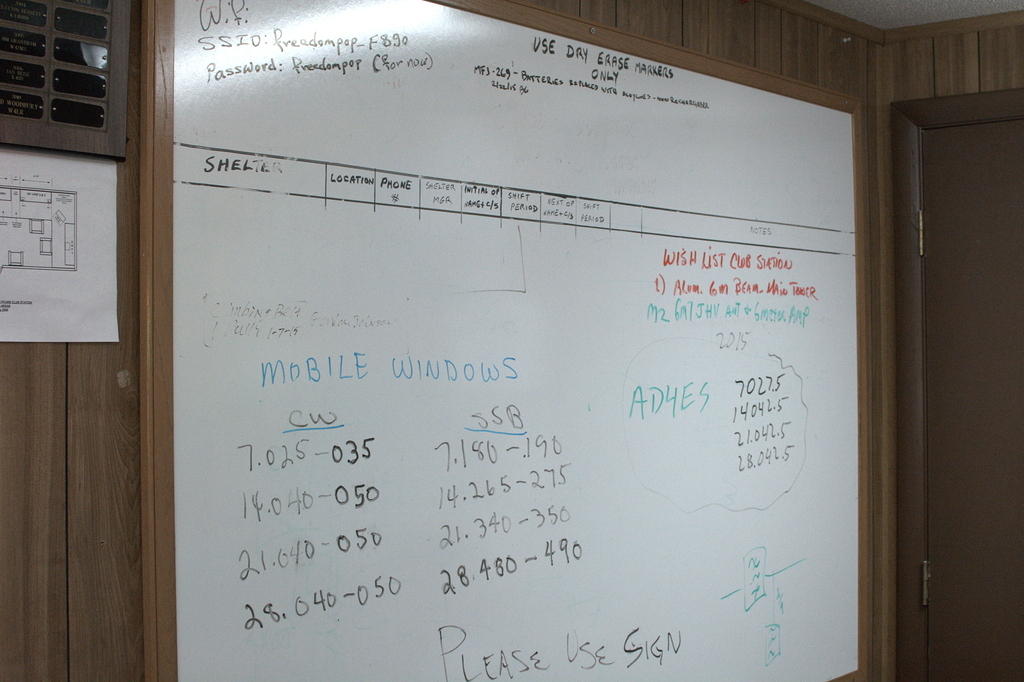 Wi Fi:
SSID: freedompop_F890
Password: freedompop (for now)
USE DRY ERASE MARKERS
ONLY
MFJ-269 - BATTERIES REPLACED WITH
SHELTER
LOCATION
PHONE
#
SHELTER
MGR
INITIAL OP
NAME+C/S
SHIFT
PERIOD
NEXT OP
NAME+C/S
SHIFT
PERIOD
NOTES
WISH LIST CLUB STATION
1) ALUM. 6M BEAM - MAIN TOWER
M2 6M7JHV ANT + 6 METER AMP
2015
1-7-15
MOBILE WINDOWS
CW
7.025-035
14.040-050
21.040-050
28.040-050
SSB
7.180-.190
14.265-275
21.340-350
28.480-490
AD4ES
7027.5
14042.5
21.042.5
28.042.5
PLEASE USE SIGN
WOODBURY